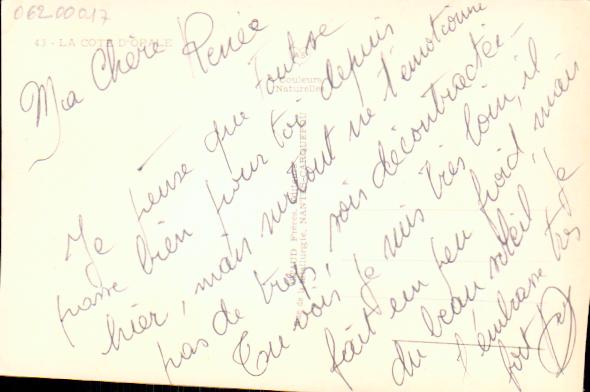 062-00017
43 - LA COTE D'OPALE
Couleurs
Naturelles
Ma Chère Renée
Je pense que tout se
passe bien pour toi depuis
hier, mais surtout ne t'émotionne
pas de trop, sois décontractée -
Tu vois, je suis très loin, il
fait un peu froid, mais
du beau soleil Je
t'embrasse très
fort